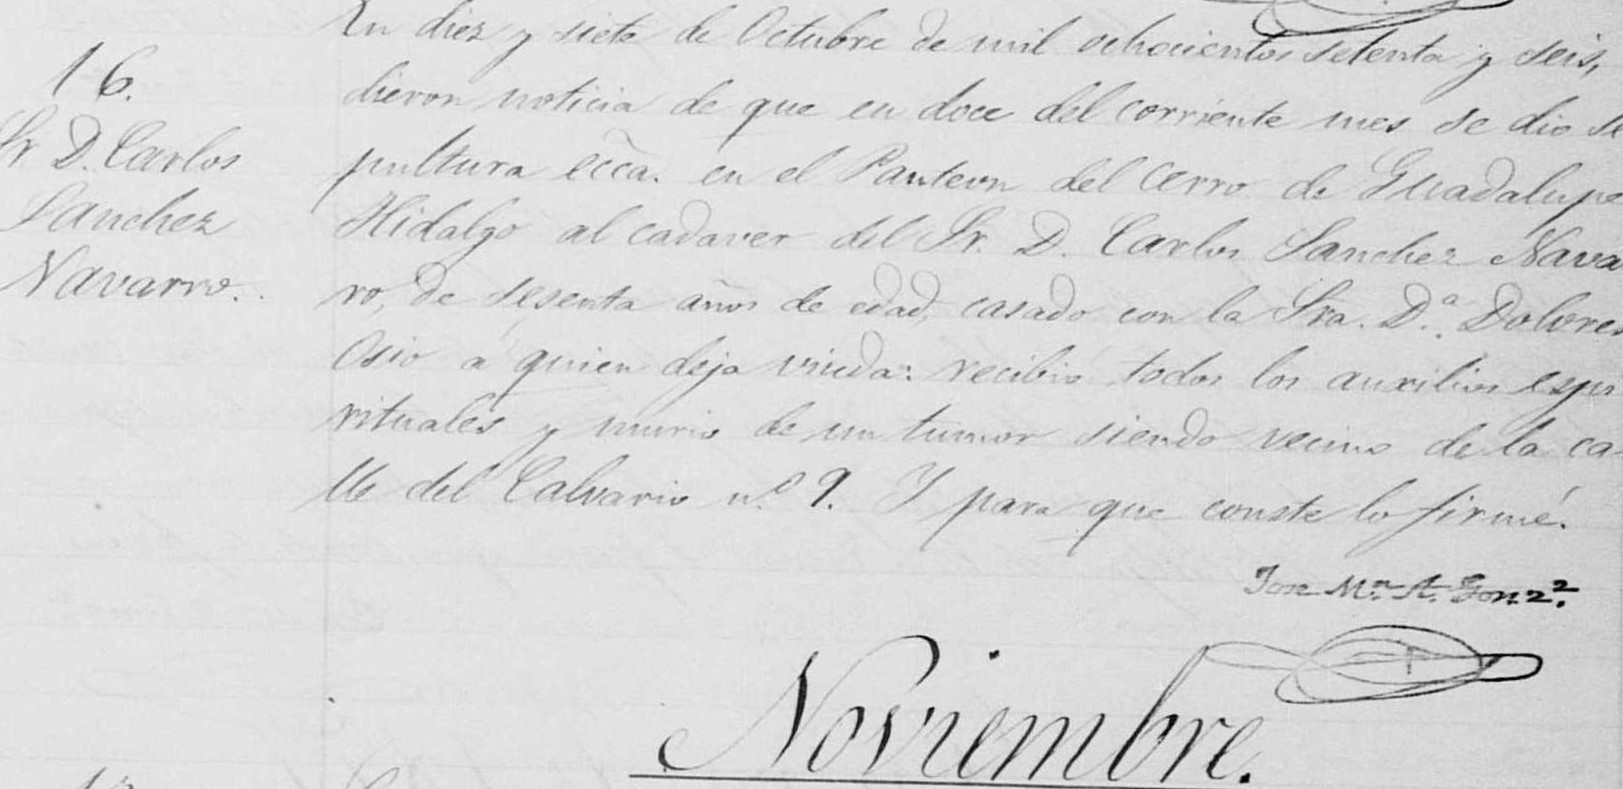 16.
Sr D. Carlos
Sanchez
Navarro.
En diez y siete de Octubre de mil ochocientos setenta y seis,
dieron noticia de que en doce del corriente mes se dio se
pultura ecca. en el Panteon del Cerro de Guadalupe
Hidalgo al cadaver del Sr. D. Carlos Sanchez Nava
ro, de sesenta años de edad, casado con la Sra. D.ª Dolores
Osio á quien deja viuda: recibió todos los auxilios espi
rituales y murio de un tumor siendo vecino de la ca
lle del Calvario n.º 9. Y para que conste lo firmé.
Jose Ma. A. Gonz.z
Noviembre.